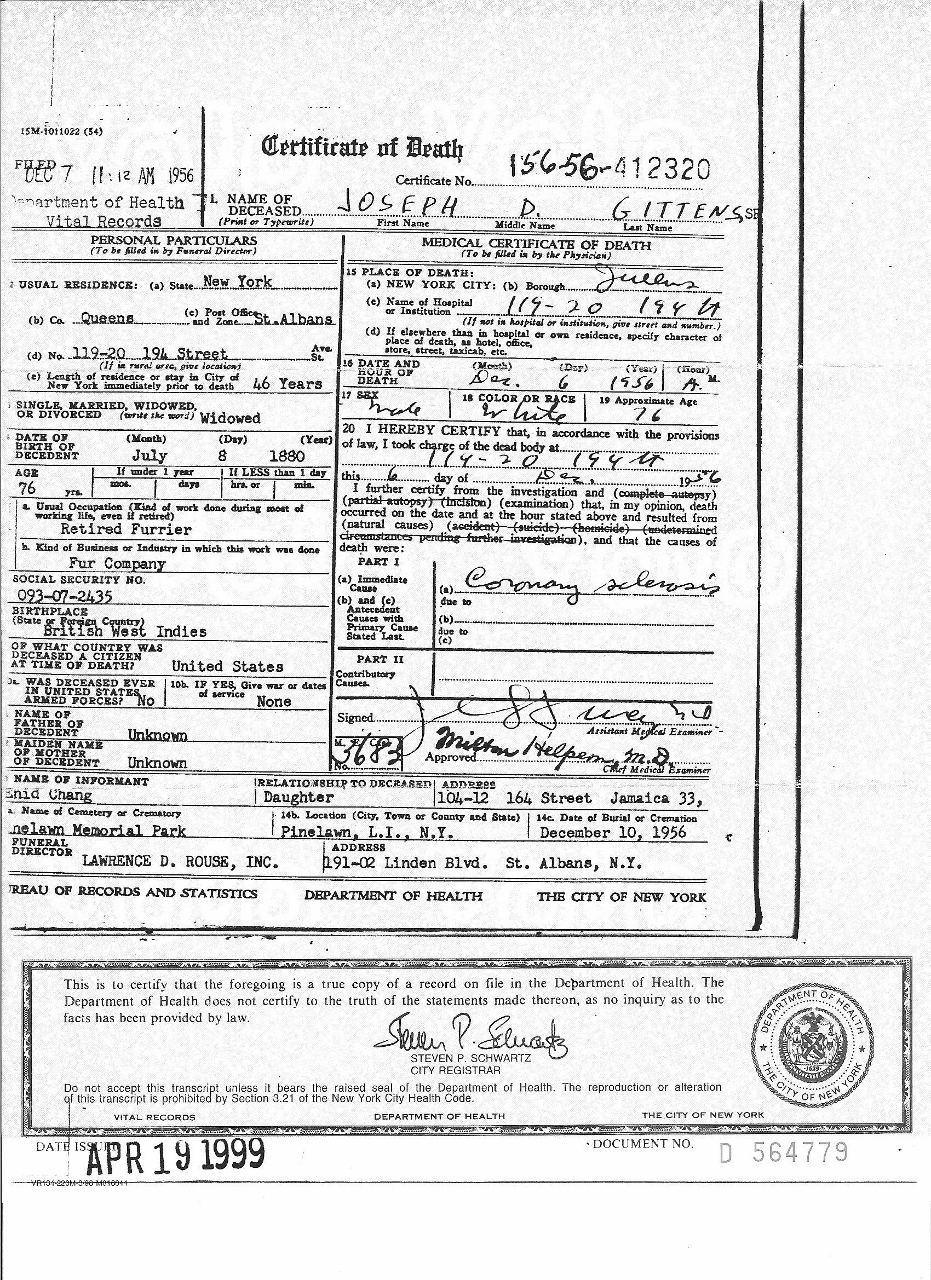 15M-1011022 (54)
Certificate of Death
FILED
DEC 7 11:12 AM 1956
Certificate No. 156-56-412320
Department of Health
Vital Records
1. NAME OF DECEASED (Print or Typewrite) JOSEPH D. GITTENS, SR
First Name Middle Name Last Name
PERSONAL PARTICULARS
(To be filled in by Funeral Director)
2 USUAL RESIDENCE: (a) State New York
(b) Co. Queens (c) Post Office and Zone St. Albans
(d) No. 119-20 194 Street Ave. St.
(If in rural area, give location)
(e) Length of residence or stay in City of New York immediately prior to death 46 Years
SINGLE, MARRIED, WIDOWED, OR DIVORCED (write the word) Widowed
DATE OF BIRTH OF DECEDENT (Month) (Day) (Year)
July 8 1880
AGE If under 1 year If LESS than 1 day
76 yrs. mos. days hrs. or min.
a. Usual Occupation (Kind of work done during most of working life, even if retired)
Retired Furrier
b. Kind of Business or Industry in which this work was done
Fur Company
SOCIAL SECURITY NO.
093-07-2435
BIRTHPLACE
(State or Foreign Country)
British West Indies
OF WHAT COUNTRY WAS DECEASED A CITIZEN AT TIME OF DEATH? United States
WAS DECEASED EVER IN UNITED STATES ARMED FORCES? No
10b. IF YES, Give war or dates of service
None
NAME OF FATHER OF DECEDENT Unknown
MAIDEN NAME OF MOTHER OF DECEDENT Unknown
MEDICAL CERTIFICATE OF DEATH
(To be filled in by the Physician)
15 PLACE OF DEATH:
(a) NEW YORK CITY: (b) Borough Queens
(c) Name of Hospital or Institution 119-20 194 St
(If not in hospital or institution, give street and number.)
(d) If elsewhere than in hospital or own residence, specify character of place of death, as hotel, office, store, street, taxicab, etc.
16 DATE AND HOUR OF DEATH (Month) (Day) (Year) (Hour)
Dec. 6 1956 A. M.
17 SEX 18 COLOR OR RACE 19 Approximate Age
Male White 76
20 I HEREBY CERTIFY that, in accordance with the provisions
of law, I took charge of the dead body at
119-20 194 St
this 6 day of Dec. 1956
I further certify from the investigation and (complete autopsy)
(partial autopsy) (incision) (examination) that, in my opinion, death
occurred on the date and at the hour stated above and resulted from
(natural causes) (accident) (suicide) (homicide) (undetermined
circumstances pending further investigation), and that the causes of
death were:
PART I
(a) Immediate Cause (a) Coronary sclerosis
(b) and (c) Antecedent Causes with Primary Cause Stated Last
due to
(b)
due to
(c)
PART II
Contributory Causes
Signed
Assistant Medical Examiner
M. E. Case No. 3683
Approved Milton Helpern, M.D.
Chief Medical Examiner
NAME OF INFORMANT RELATIONSHIP TO DECEASED ADDRESS
Enid Chang Daughter 104-12 164 Street Jamaica 33,
a. Name of Cemetery or Crematory 14b. Location (City, Town or County and State) 14c. Date of Burial or Cremation
nelawn Memorial Park Pinelawn, L.I., N.Y. December 10, 1956
FUNERAL DIRECTOR ADDRESS
LAWRENCE D. ROUSE, INC. 191-02 Linden Blvd. St. Albans, N.Y.
REAU OF RECORDS AND STATISTICS DEPARTMENT OF HEALTH THE CITY OF NEW YORK
This is to certify that the foregoing is a true copy of a record on file in the Department of Health. The
Department of Health does not certify to the truth of the statements made thereon, as no inquiry as to the
facts has been provided by law.
Steven P. Schwartz
STEVEN P. SCHWARTZ
CITY REGISTRAR
Do not accept this transcript unless it bears the raised seal of the Department of Health. The reproduction or alteration
of this transcript is prohibited by Section 3.21 of the New York City Health Code.
VITAL RECORDS DEPARTMENT OF HEALTH THE CITY OF NEW YORK
DEPARTMENT OF HEALTH
THE CITY OF NEW YORK
DATE ISSUED APR 19 1999
DOCUMENT NO. D 564779